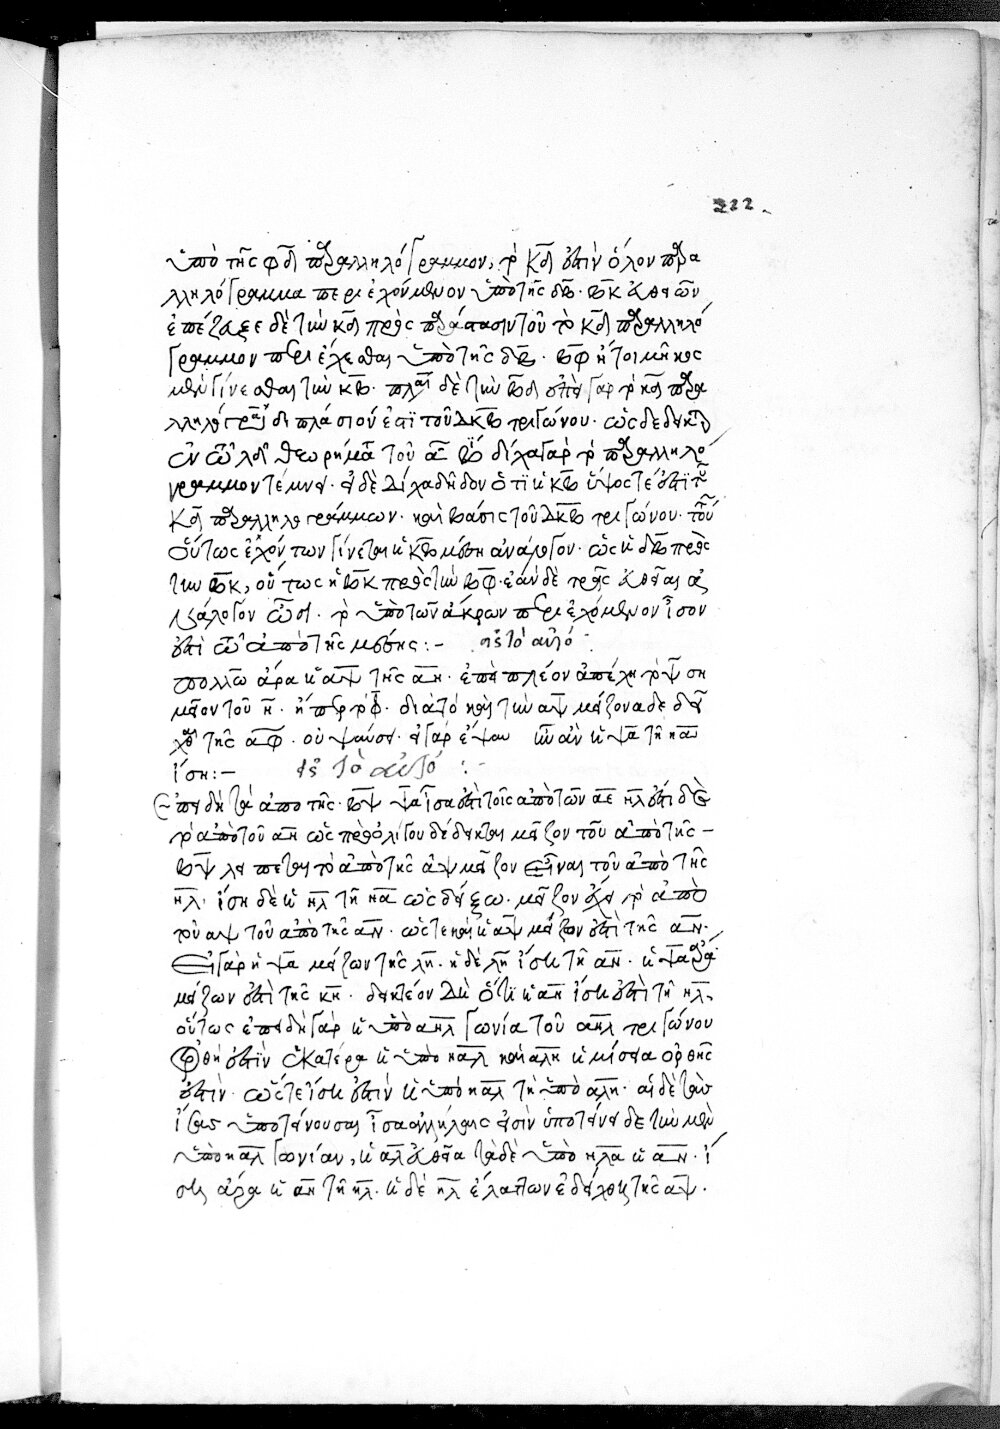 222
ὑπὸ τῆς φδλ παραλληλόγραμμον, τὸ κδλ ἐστὶν ὅλον παρα
λληλόγραμμα περιεχόμενον ὑπὸ τῆς δβ. βκ εὐθειῶν
ἐπέζευξε δὲ τὴν κδλ πρὸς παράστασιν τοῦ τὸ κδλ παραλληλό
γραμμον περιέχεσθαι ὑπὸ τῆς δβ. βφ ἤτοι μῆκος
μὲν γίνεσθαι τὴν κβ. πλα δὲ τὴν βδλ ἐπεὶ γὰρ τὸ κδλ παρα
λληλόγρα διπλάσιόν ἐστι τοῦ δκβ τριγώνου. ὡς δέδεικται
ἐν τῷ λδ θεωρήματι τοῦ α βι δίχα γὰρ τὸ παραλληλό
γραμμον τέμνει. εἰ δὲ δίχα δῆλον ὅτι ἡ κβ ὕψος τέ ἐστι τοῦ
κδλ παραλληλογράμμων. καὶ βάσις τοῦ δκβ τριγώνου. τούτων
οὕτως ἐχόντων γίνεται ἡ κβ μέση ἀνάλογον. ὡς ἡ δβ πρὸς
τὴν βκ, οὕτως ἡ βκ πρὸς τὴν βφ. ἐὰν δὲ τρεῖς εὐθεῖαι ἀ
νάλογον ὦσι. τὸ ὑπὸ τῶν ἄκρων περιεχόμενον ἴσον
ἐστὶ τῷ ἀπὸ τῆς μέσης:- εἰς τὸ αὐτό
πολλῷ ἄρα ἡ αψ τῆς αη. ἐπεὶ πλέον ἀπέχει τὸ ψ ση
μεῖον τοῦ η. ἤπερ τὸ φ. διὰ τὸ καὶ τὴν αψ μείζονα δεδεῖ
χθαι τῆς αφ. οὐ ψαύσει. εἰ γὰρ ἔψαυεν ἦν ἂν ἡ ψα τῇ κα
ἴση:- εἰς τὸ αὐτό :-
ἐπειδὴ τὰ ἀπὸ τῆς. βψ ψα ἴσα ἐστὶ τοῖς ἀπὸ τῶν αε ηλ ἐστὶ δὲ
τὸ ἀπὸ τοῦ αη ὡς πρὸ ὀλίγου δέδεικται μεῖζον τοῦ ἀπὸ τῆς –
βψ λείπεται τὸ ἀπὸ τῆς αψ μεῖζον εἶναι τοῦ ἀπὸ τῆς
ηλ. ἴση δὲ ἡ ηλ τῇ ηα ὡς δείξω. μεῖζον ἔχει τὸ ἀπὸ
τοῦ αψ τοῦ ἀπὸ τῆς αη. ὥστε καὶ ἡ αψ μείζων ἐστὶ τῆς αη.
εἰ γὰρ ἡ ψα μείζων τῆς λη. ἡ δὲ λη ἴση τῇ αη. ἡ ψα ἄρα
μείζων ἐστὶ τῆς κη. δεικτέον δὴ ὅτι ἡ αη ἴση ἐστὶ τῇ ηλ.
οὕτως ἐπειδὴ γὰρ ἡ ὑπὸ αηλ γωνία τοῦ αηλ τριγώνου
ὀρθή ἐστιν ἑκατέρα ἡ ὑπὸ ηαλ καὶ αλη ἡμίσεια ὀρθῆς
ἐστιν. ὥστε ἴση ἐστὶν ἡ ὑπὸ ηαλ τῇ ὑπὸ αλη. αἱ δὲ τὰς
ἴσας ὑποτείνουσαι ἴσαι ἀλλήλαις εἰσὶν ὑποτείνει δὲ τὴν μὲν
ὑπὸ ηαλ γωνίαν, ἡ αλ εὐθεῖα τὴν δὲ ὑπὸ ηλα ἡ αη. ἴ
ση ἄρα ἡ αη τῇ ηλ. ἡ δὲ ηλ ἐλάττων ἐδείχθη τῆς αψ.